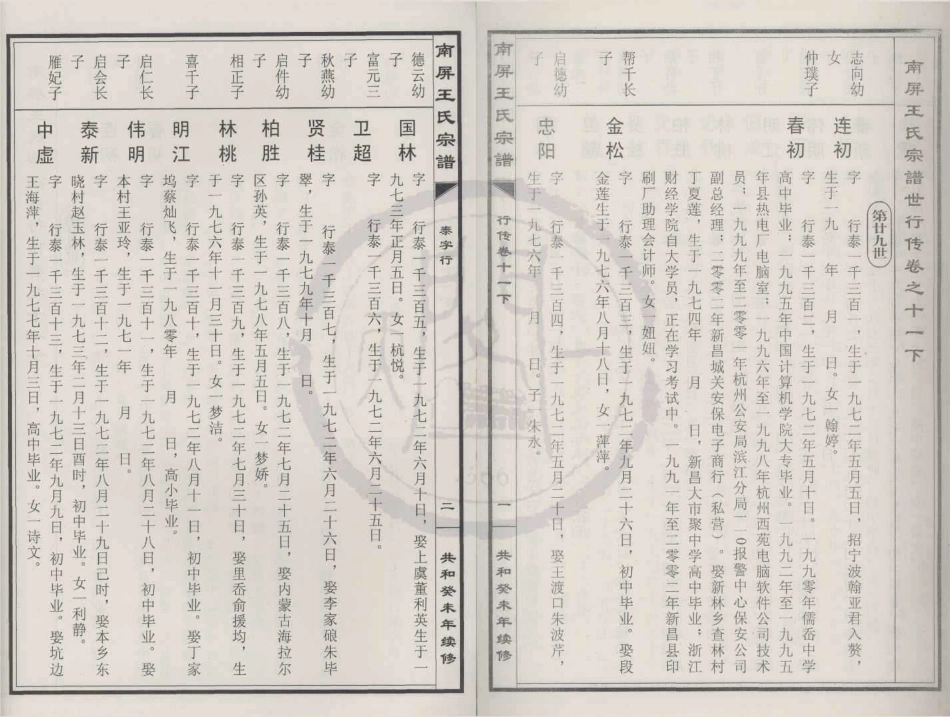 南屏王氏宗譜世行传卷之十一下
第廿九世
志向幼女
连初
字 行泰一千三百一，生于一九七二年五月五日，招宁波翰亚君入赘，
生于一九 年 月 日。女一翰婷。
仲璞子
春初
字 行泰一千三百二，生于一九七二年五月十日。一九九零年儒岙中学
高中毕业；一九九五年中国计算机学院大专毕业。一九九二年至一九九五
年县热电厂电脑室；一九九六年至一九九八年杭州西苑电脑软件公司技术
员；一九九九年至二零零一年杭州公安局滨江分局一一〇报警中心保安公司
副总经理；二零零二年新昌城关安保电子商行（私营）。娶新林乡查林村
丁夏莲，生于一九七四年 月 日，新昌大市聚中学高中毕业；浙江
财经学院自大学员，正在学习考试中。一九九一年至二零零二年新昌县印
刷厂助理会计师。女一妞妞。
帮千长子
金松
字 行泰一千三百三，生于一九七二年九月二十六日，初中毕业。娶段
金莲生于一九七六年八月十八日，女一萍萍。
启德幼子
忠阳
字 行泰一千三百四，生于一九七二年五月二十日，娶王渡口朱波芹，
生于一九七六年 月 日。子一朱永。
南屏王氏宗譜
行传卷十一下
一
共和癸未年续修
南屏王氏宗譜
泰字行
二
共和癸未年续修
德云幼子
国林
字 行泰一千三百五，生于一九七二年六月十日，娶上虞董利英生于一
九七三年正月五日。女一杭悦。
富元三子
卫超
字 行泰一千三百六，生于一九七二年六月二十五日。
秋燕幼子
贤桂
字 行泰一千三百七，生于一九七二年六月二十六日，娶李家硠朱毕
翠，生于一九七九年十月 日。
启件幼子
柏胜
字 行泰一千三百八，生于一九七二年七月二十五日，娶内蒙古海拉尔
区孙英，生于一九七八年五月五日。女一梦娇。
相正子
林桃
字 行泰一千三百九，生于一九七二年七月三十日，娶里岙俞援均，生
于一九七六年十一月三十日。女一梦洁。
喜千子
明江
字 行泰一千三百十，生于一九七二年八月十一日，初中毕业。娶丁家
坞蔡灿飞，生于一九八零年 月 日，高小毕业。
启仁长子
伟明
字 行泰一千三百十一，生于一九七二年八月二十八日，初中毕业。娶
本村王亚玲，生于一九七一年 月 日。
启会长子
泰新
字 行泰一千三百十二，生于一九七二年八月二十九日己时，娶本乡东
晓村赵玉林，生于一九七三年二月十三日酉时，初中毕业。女一利静。
雁妃子
中虚
字 行泰一千三百十三，生于一九七二年九月九日，初中毕业。娶坑边
王海萍，生于一九七七年十月三日，高中毕业。女一诗文。